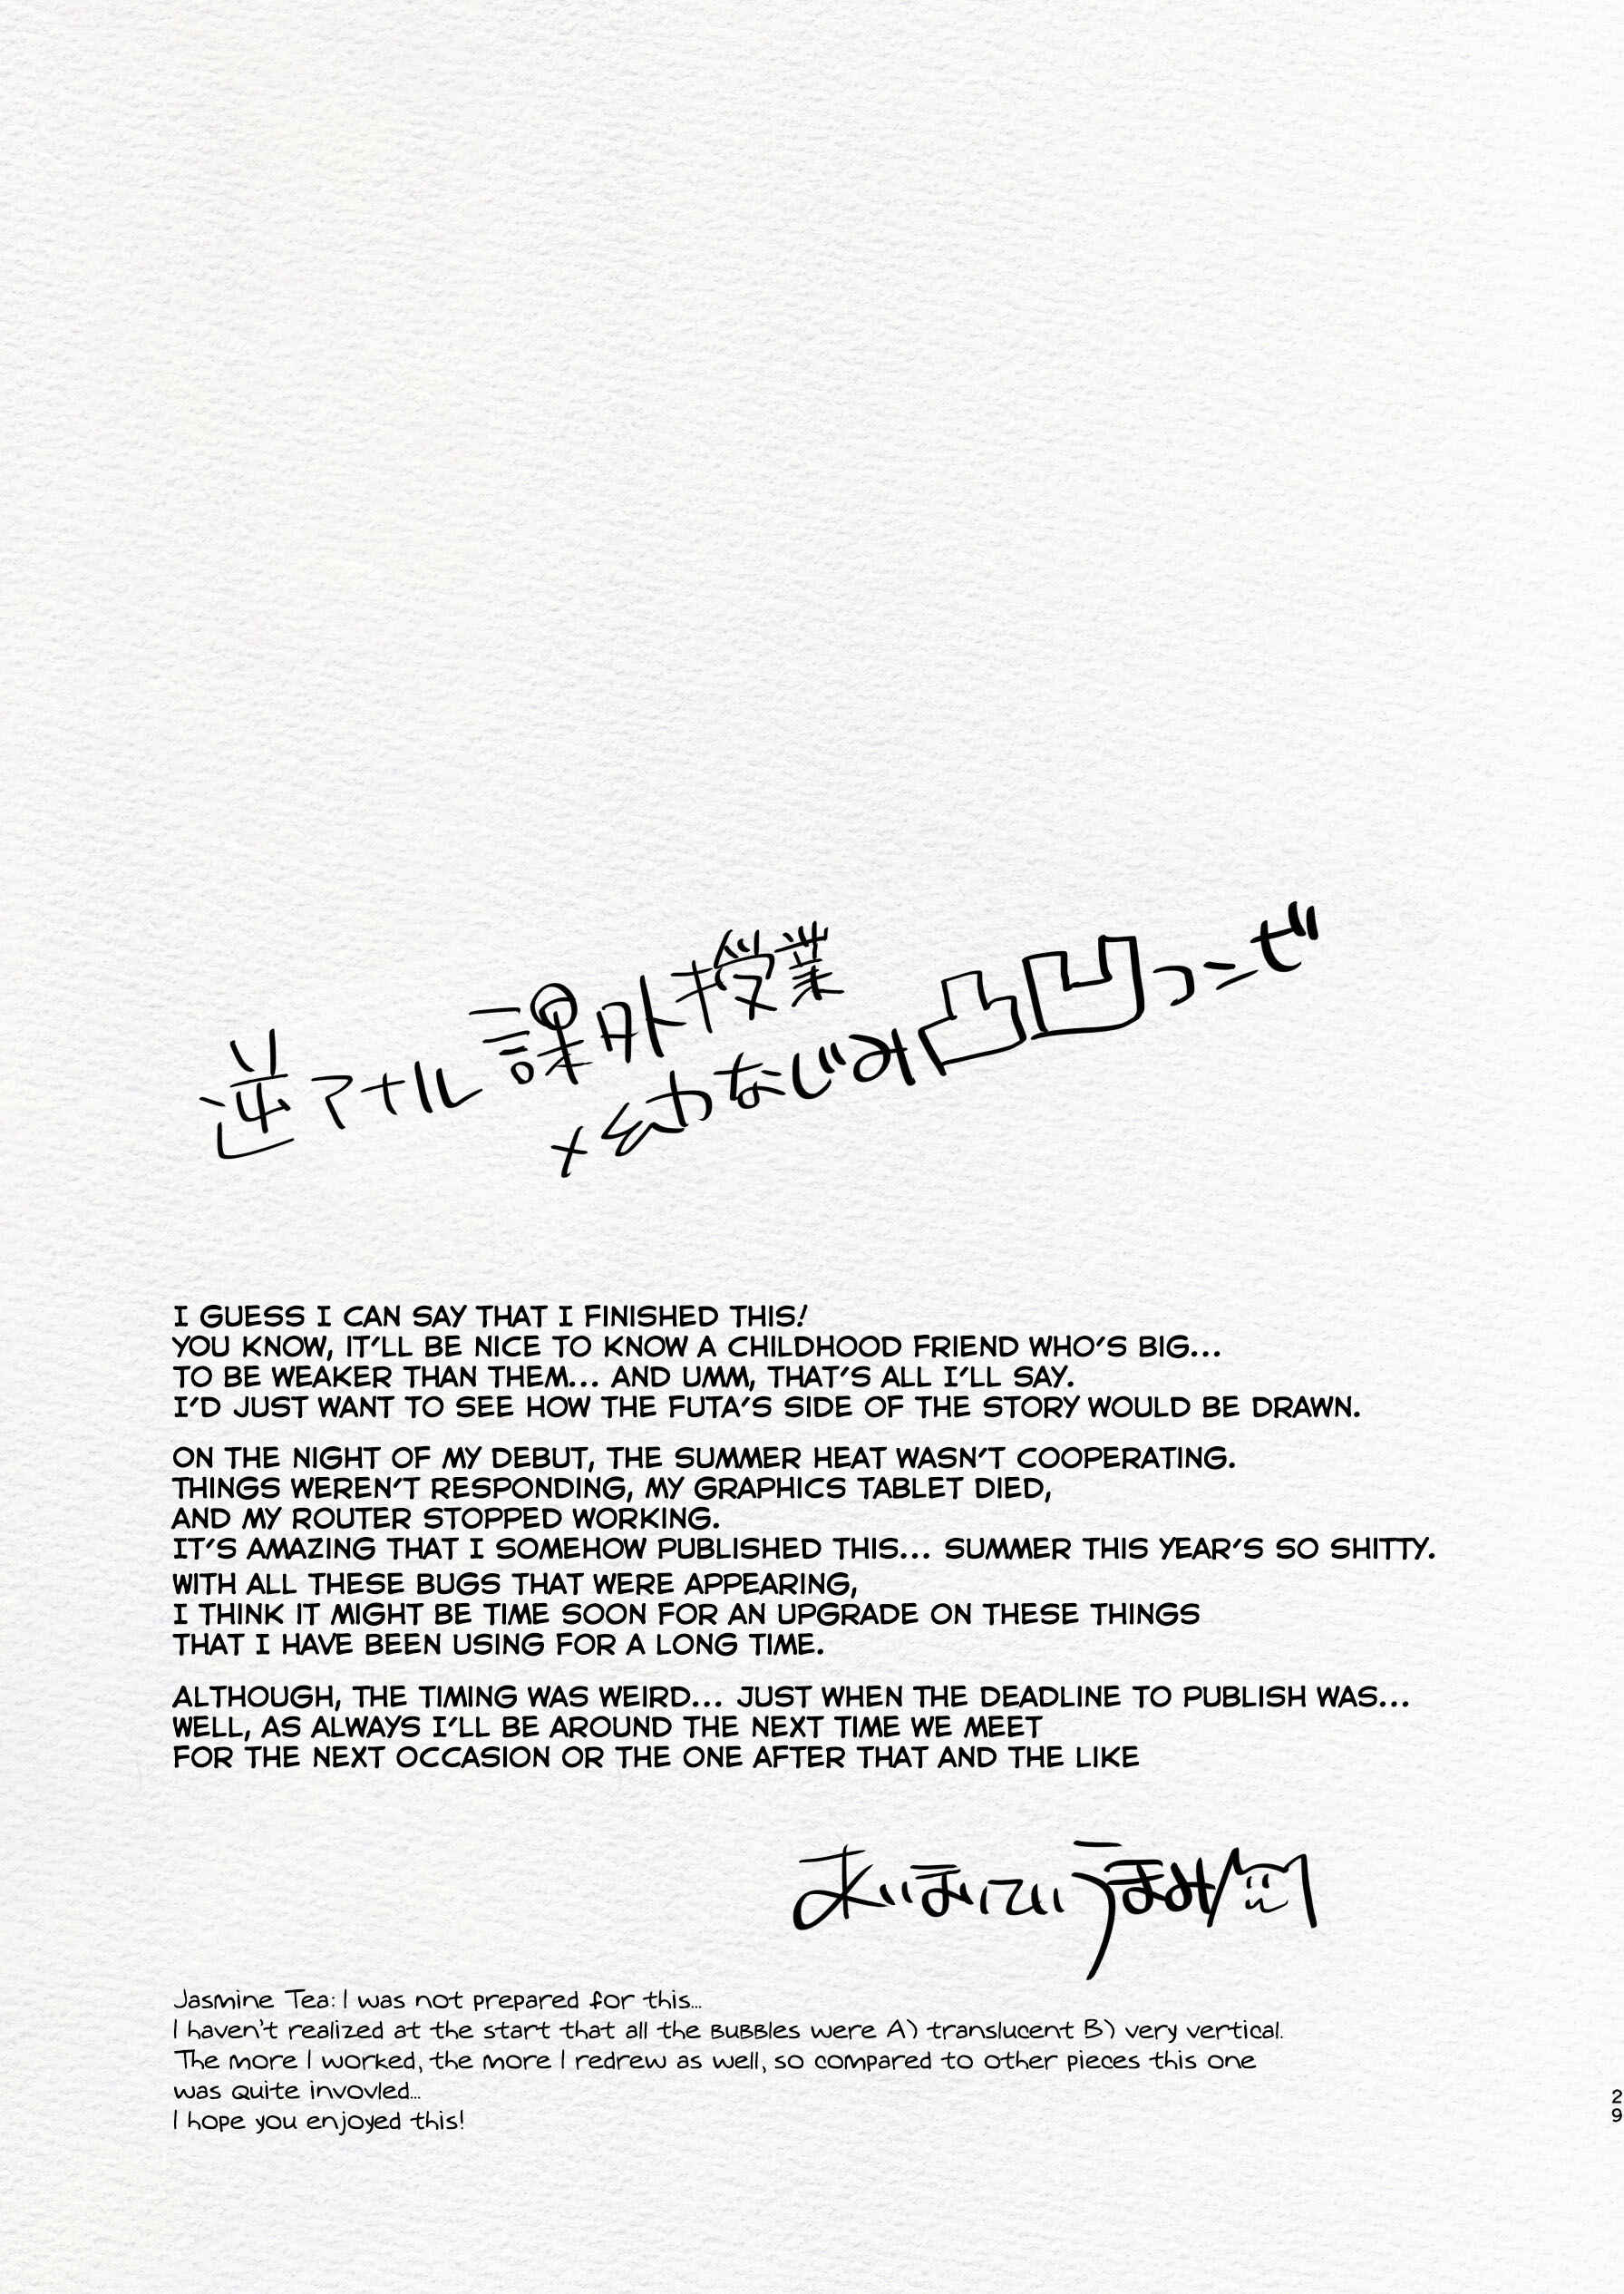 逆アナル課外授業
×幼なじみ凸凹コンビ
I GUESS I CAN SAY THAT I FINISHED THIS!
YOU KNOW, IT'LL BE NICE TO KNOW A CHILDHOOD FRIEND WHO'S BIG...
TO BE WEAKER THAN THEM... AND UMM, THAT'S ALL I'LL SAY.
I'D JUST WANT TO SEE HOW THE FUTA'S SIDE OF THE STORY WOULD BE DRAWN.
ON THE NIGHT OF MY DEBUT, THE SUMMER HEAT WASN'T COOPERATING.
THINGS WEREN'T RESPONDING, MY GRAPHICS TABLET DIED,
AND MY ROUTER STOPPED WORKING.
IT'S AMAZING THAT I SOMEHOW PUBLISHED THIS... SUMMER THIS YEAR'S SO SHITTY.
WITH ALL THESE BUGS THAT WERE APPEARING,
I THINK IT MIGHT BE TIME SOON FOR AN UPGRADE ON THESE THINGS
THAT I HAVE BEEN USING FOR A LONG TIME.
ALTHOUGH, THE TIMING WAS WEIRD... JUST WHEN THE DEADLINE TO PUBLISH WAS...
WELL, AS ALWAYS I'LL BE AROUND THE NEXT TIME WE MEET
FOR THE NEXT OCCASION OR THE ONE AFTER THAT AND THE LIKE
Jasmine Tea: I was not prepared for this...
I haven't realized at the start that all the BUBBles were A) translucent B) very vertical.
The more I worked, the more I redrew as well, so compared to other pieces this one
was quite invovled...
I hope you enjoyed this!
29